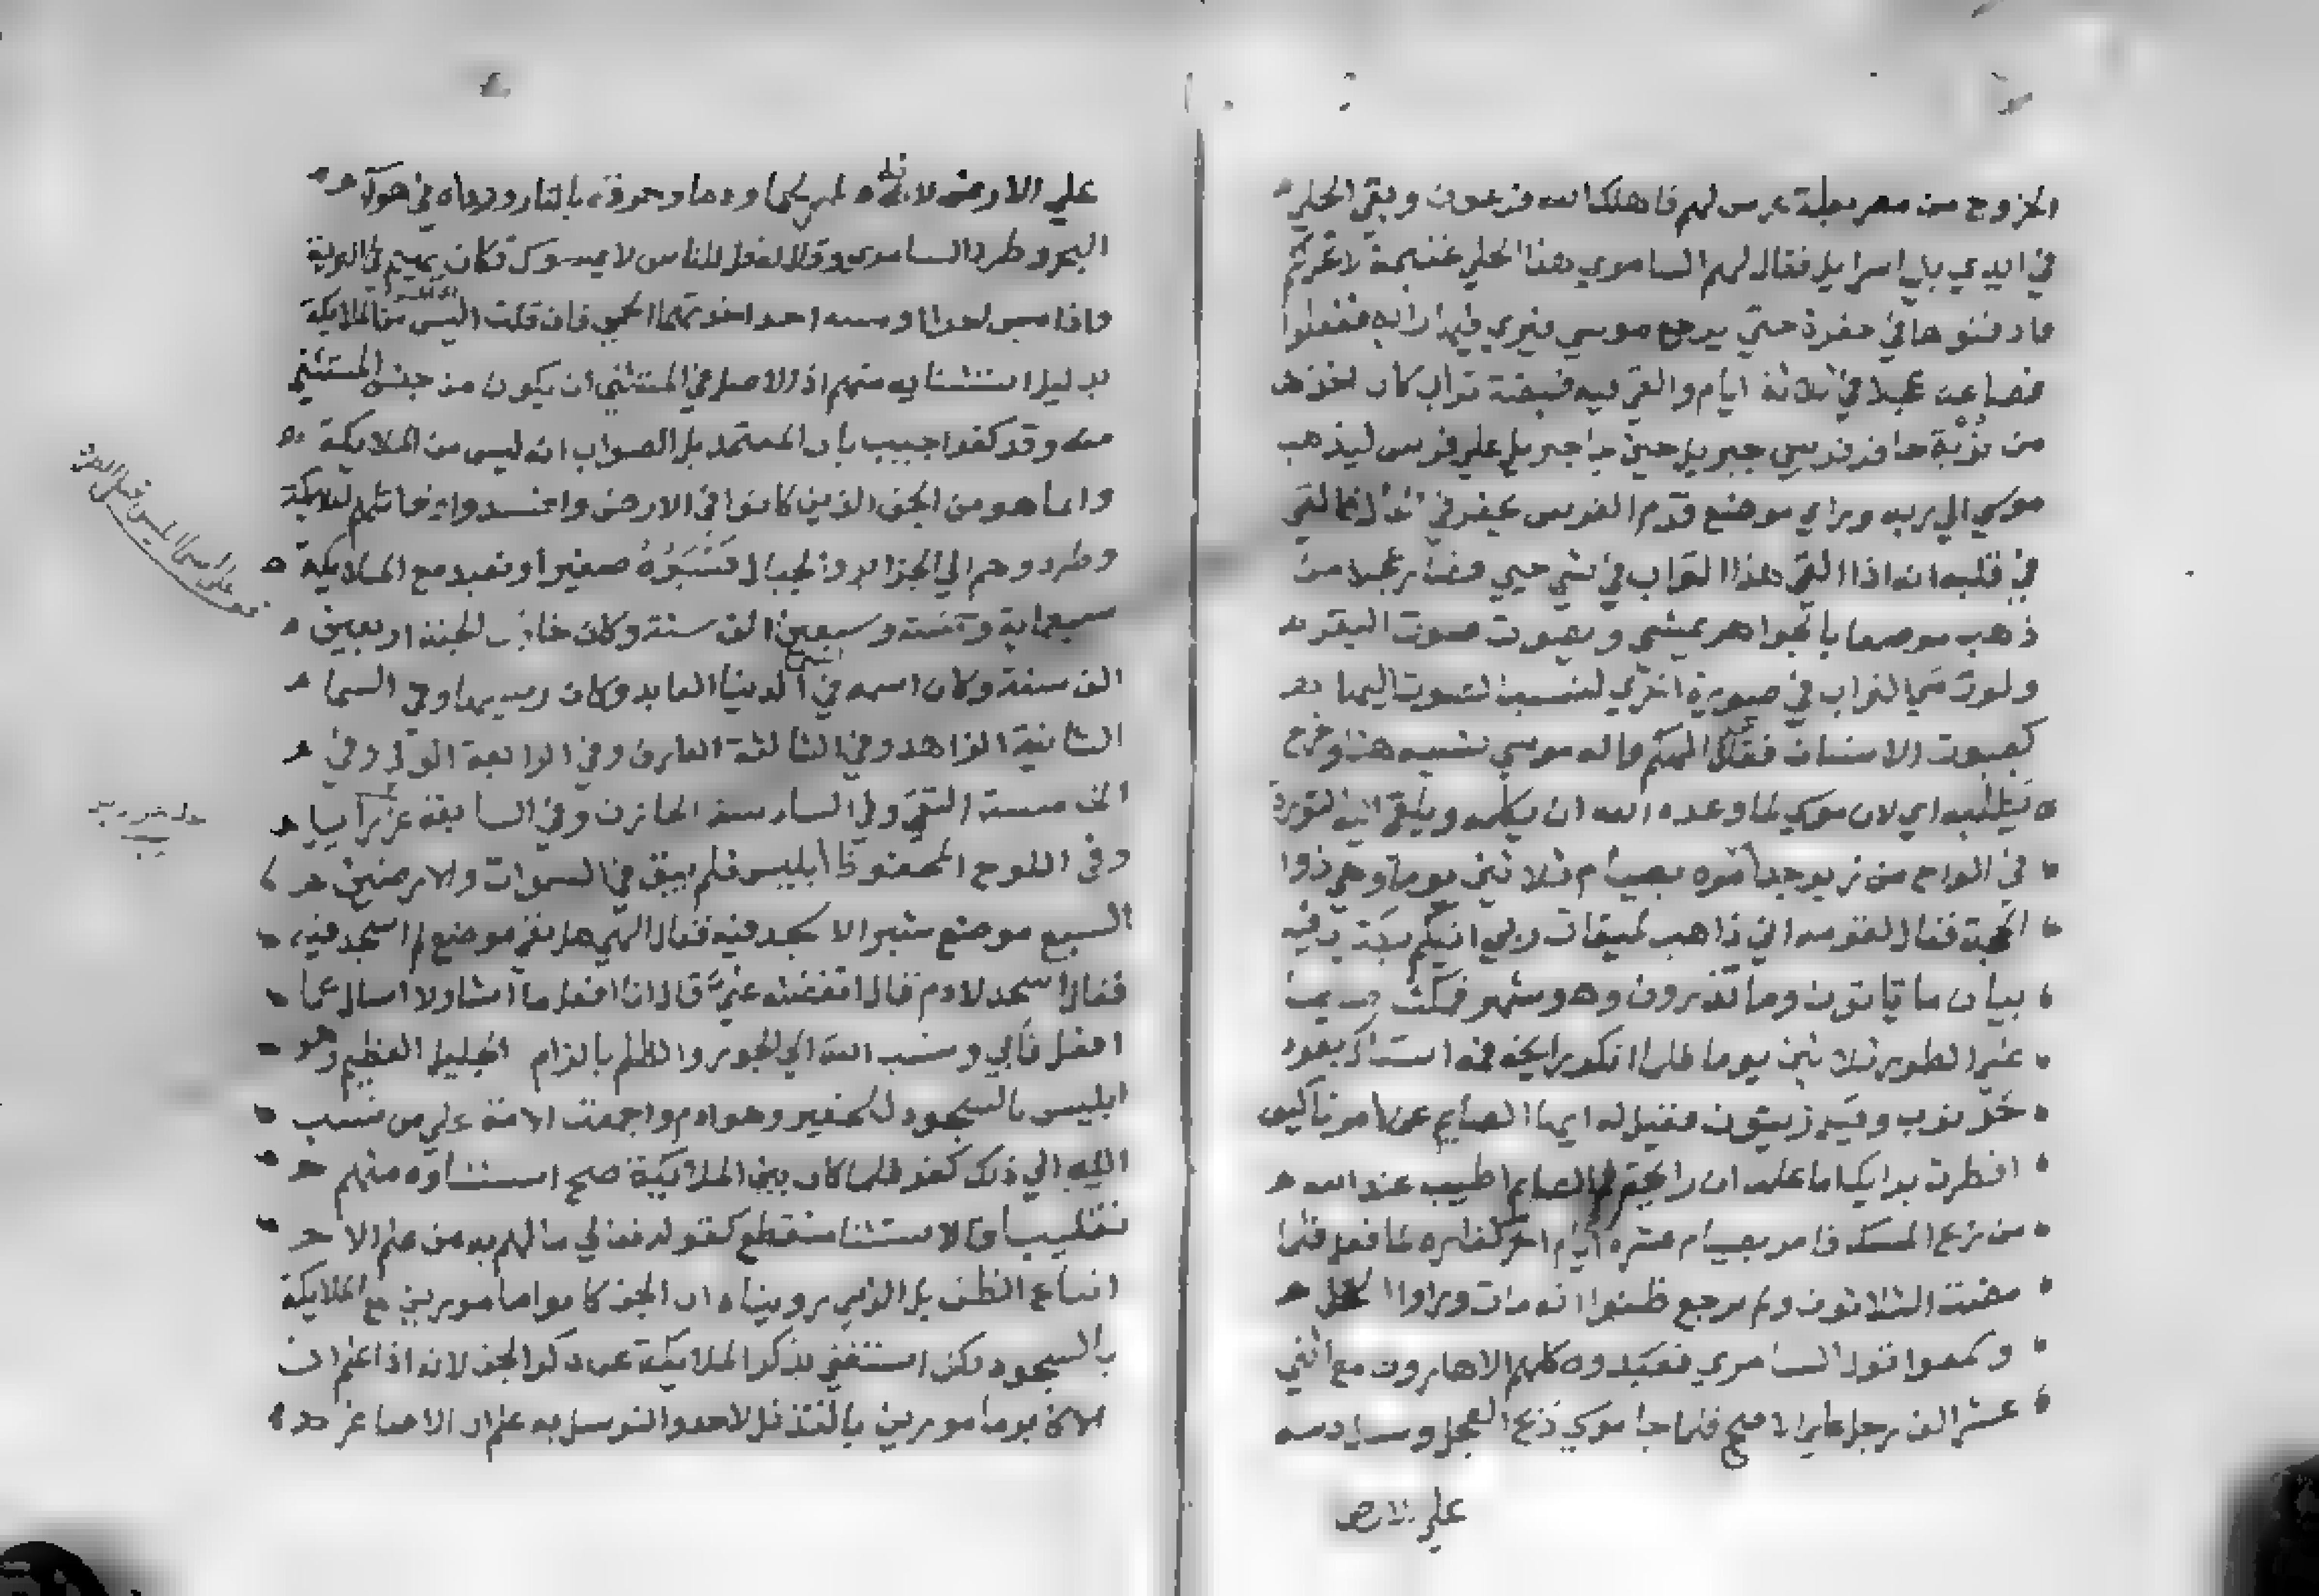 الخروج من مصر بعلة عرس لهم فاهلك الله فرعون وبقي الحلي
في ايدي بني اسرايل فقال لهم السامري هذا الحلي غنيمة لا تحل لكم
فادفنوها في حفرة حتي يرجع موسي فيري فيها رايه ففعلوا
فصاغه عجلا في ثلاثة ايام والقي فيه قبضة تراب كان اخذها
من تربة حافر فرس جبريل حين جا جبريل علي فرس ليذهب
موسي الي ربه وراي موضع قدم الفرس يخضر في
في قلبه انه اذا القي هذا التراب في شي حيي فصار عجلا من
ذهب مرصعا بالجواهر يمشي ويصوت صوت البقر
ولو رمي التراب في صورة اخري لصوت
كصوت الانسان فقال الهكم واله موسي نسيه هنا وخرج
يطلبه اي لان موسي لما وعده الله ان يكلمه ويلقي اليه التورية
في الواح من زبرجد امره بصيام ثلاثين يوما وهي ذوا
الحجة فقال لقومه اني ذاهب لميقات ربي اتيكم بكتاب فيه
بيان ما تاتون وما تذرون وهو شهر فمكث
علي الطور ثلاثين يوما فلما انكر رايحة فمه استاك بعود
خرنوب وقيل زيتون فقيل له ايها الصايم عن امرنا كيف
افطرت برايك اما علمت ان رايحة فم الصايم اطيب عند الله
من ريح المسك فامر بصيام عشرة ايام اخر كفارة لما فعل فلما
مضت الثلاثون ولم يرجع ظنوا انه مات وراوا العجل
وسمعوا قول السامري فعبدوه كلهم الا هارون مع اثني
عشر الف رجل علي الاصح فلما جا موسي ذبح العجل وسال دمه
علي الارض
علي الارض لانه لحما ودما وحرقه بالنار وذراه في هوا
البحر وطرد السامري وقال لفظ للناس لا يمسوك فكان يهيم في البرية
واذا مس احدا او مسه احد اخذتهما الحمي فان قلت ابليس من الملايكة
بدليل استثنايه منهم اذ الاصل في المستثني ان يكون من جنس المستثني
منه وقد كفر اجيب بان المعتمد بل الصواب انه ليس من الملايكة
وانما هو من الجن الذين كانوا في الارض وافسدوا فقاتلهم الملايكة
وطردوهم الي الجزاير والجبال صغيرا وتعبد مع الملايكة
سبعماية وخمسة وسبعين الف سنة وكان خازن الجنة اربعين
الف سنة وكان اسمه في الدنيا العابد وكان وفي السما
الثانية الزاهد وفي الثالثة العارف وفي الرابعة الولي وفي
الخامسة التقي وفي السادسة الخازن وفي السابعة عزازيل
وفي اللوح المحفوظ ابليس فلم يبق في السموات والارضين
السبع موضع شبر الا سجد فيه فقال الهي هل بقي موضع لم اسجد فيه
فقال اسجد لادم قال اتفضله علي قال انا افعل ما اشا ولا اسال عما
افعل فابي ونسب الله الي الجور والظلم بالزام الجليل العظيم وهو
ابليس بالسجود للحقير وهو ادم واجمعت الامة علي من نسب
الله الي ذلك كفر فلما كان بين الملايكة صح استثناوه منهم
تغليبا والاستثنا منقطع كقوله تعالي ما لهم به من علم الا
اتباع الظن بل الذي رويناه ان الجن كانوا مامورين مع الملايكة
بالسجود لكن استغني بذكر الملايكة عن ذكر الجن لانه اذا علم ان
الاكابر مامورين بالتذلل لاحد والتوسل به علم ان الاصاغر